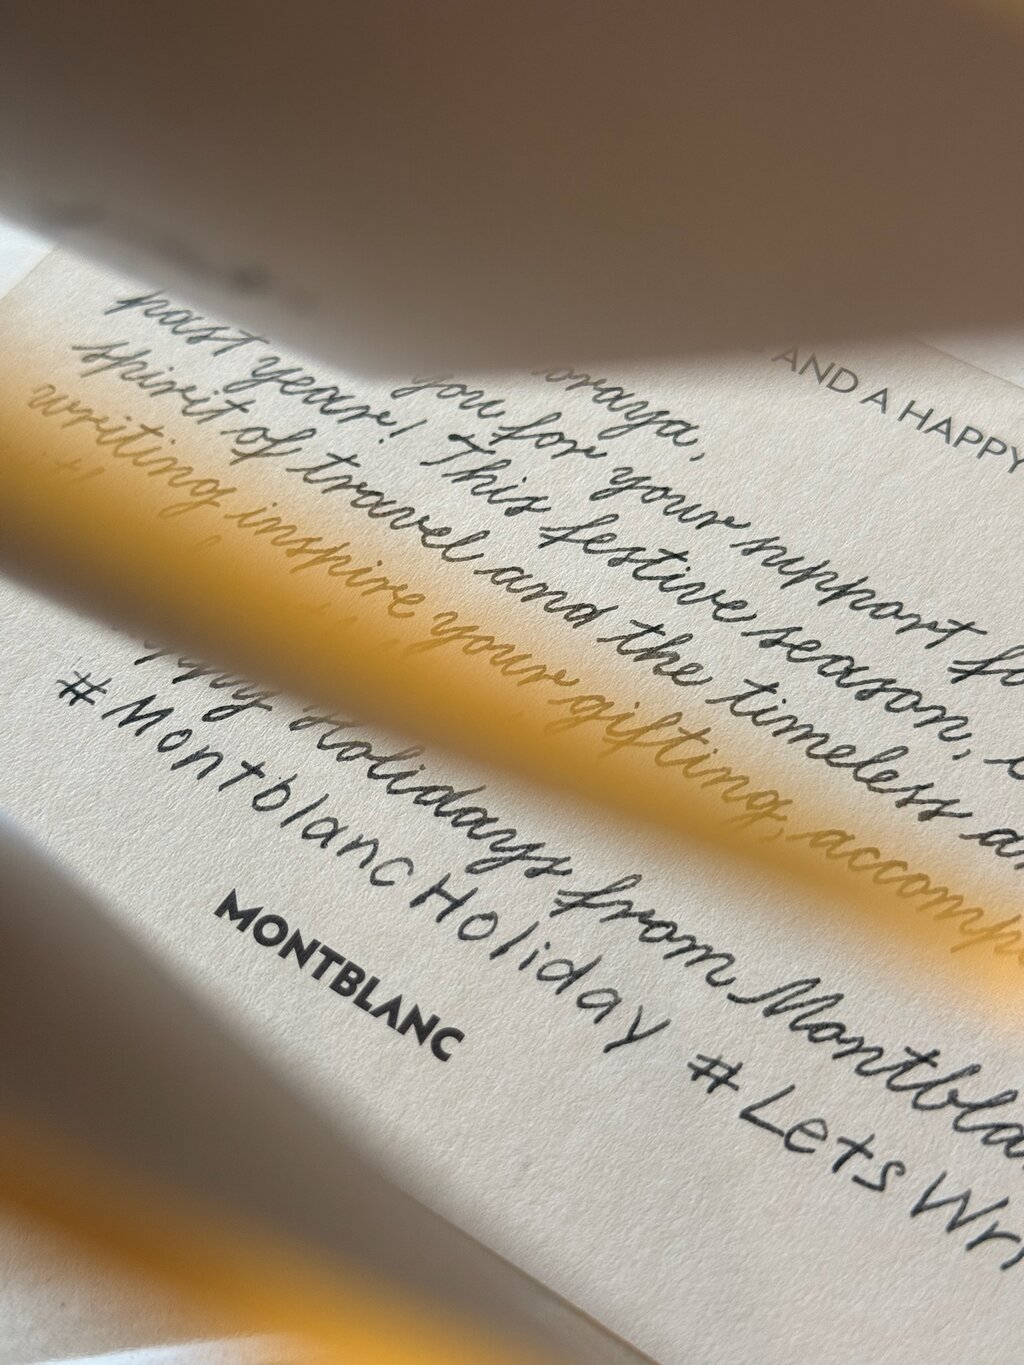 AND A HAPPY
oraya,
you for your support fo
past year! This festive season,
spirit of travel and the timeless a
writing inspire your gifting, accomp
ppy Holidays from Montbla
#MontblancHoliday #LetsWri
MONTBLANC